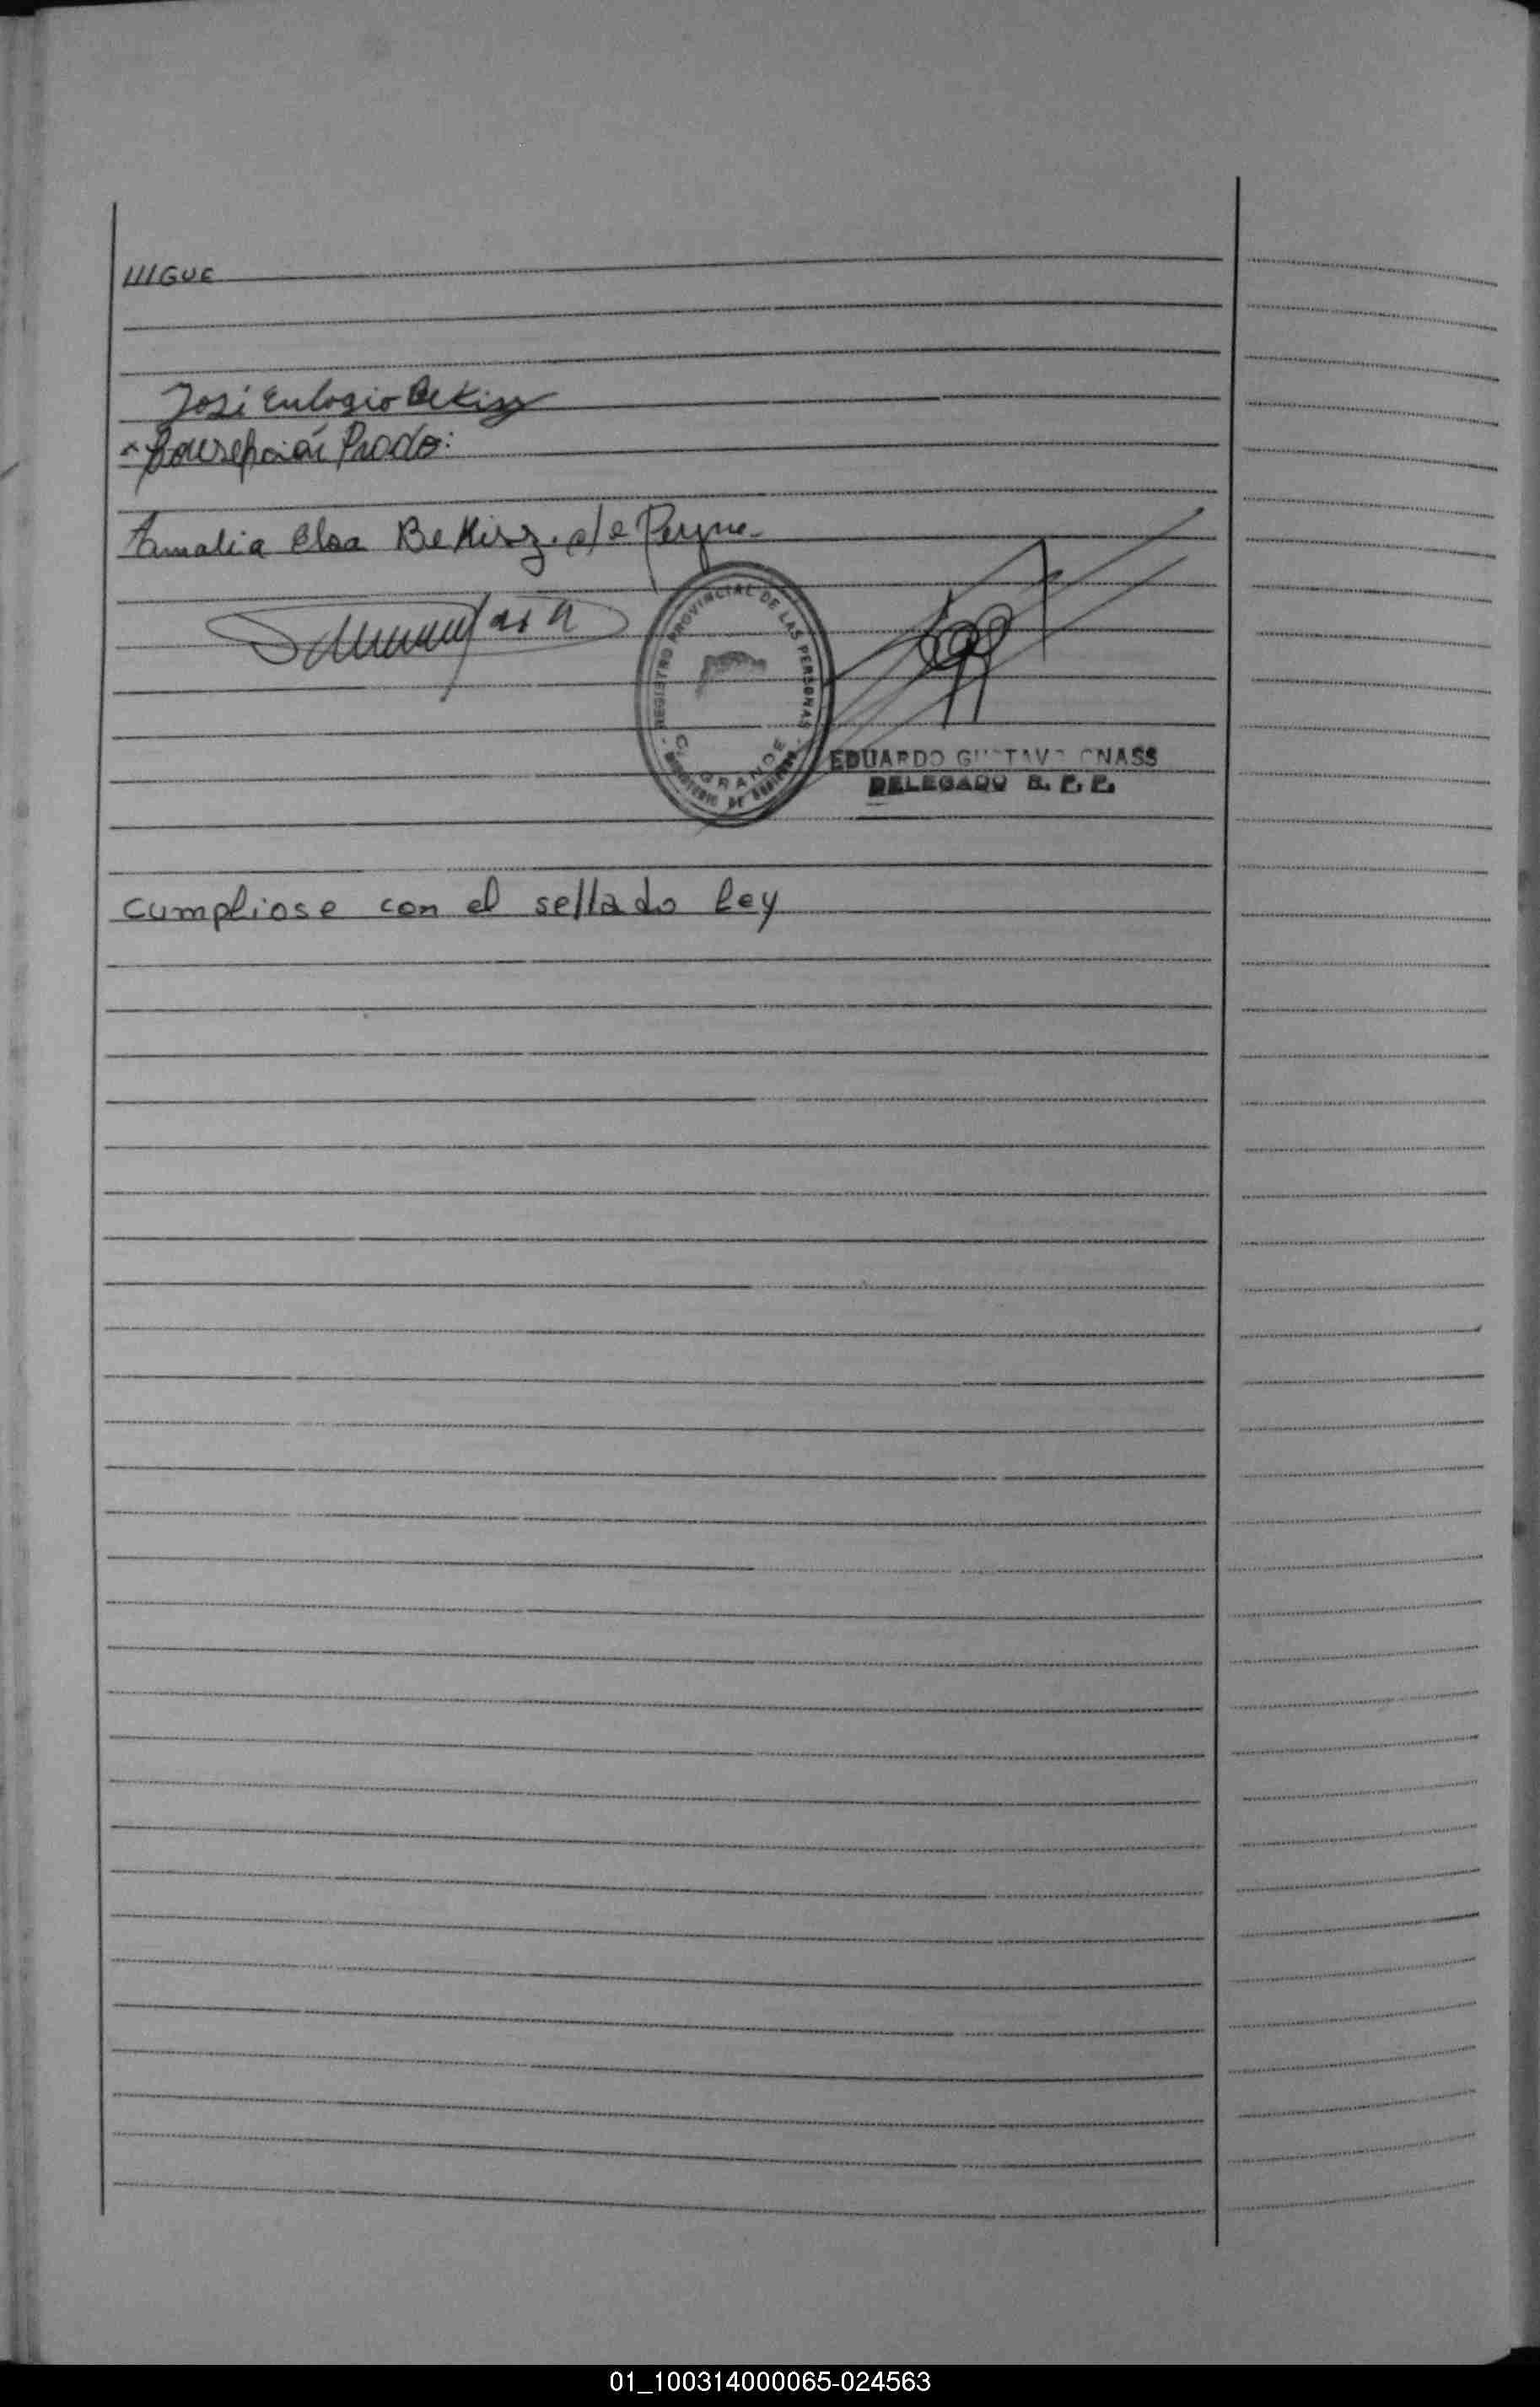 ///GUE
José Eulogio Bekisz
Concepción Prado:
Amalia Elsa Bekisz de
REGISTRO PROVINCIAL DE LAS PERSONAS
C. GRANDE
MINISTERIO DE GOBIERNO
EDUARDO GUSTAVO
DELEGADO R. P. P.
cumpliose con el sellado ley
01_100314000065-024563